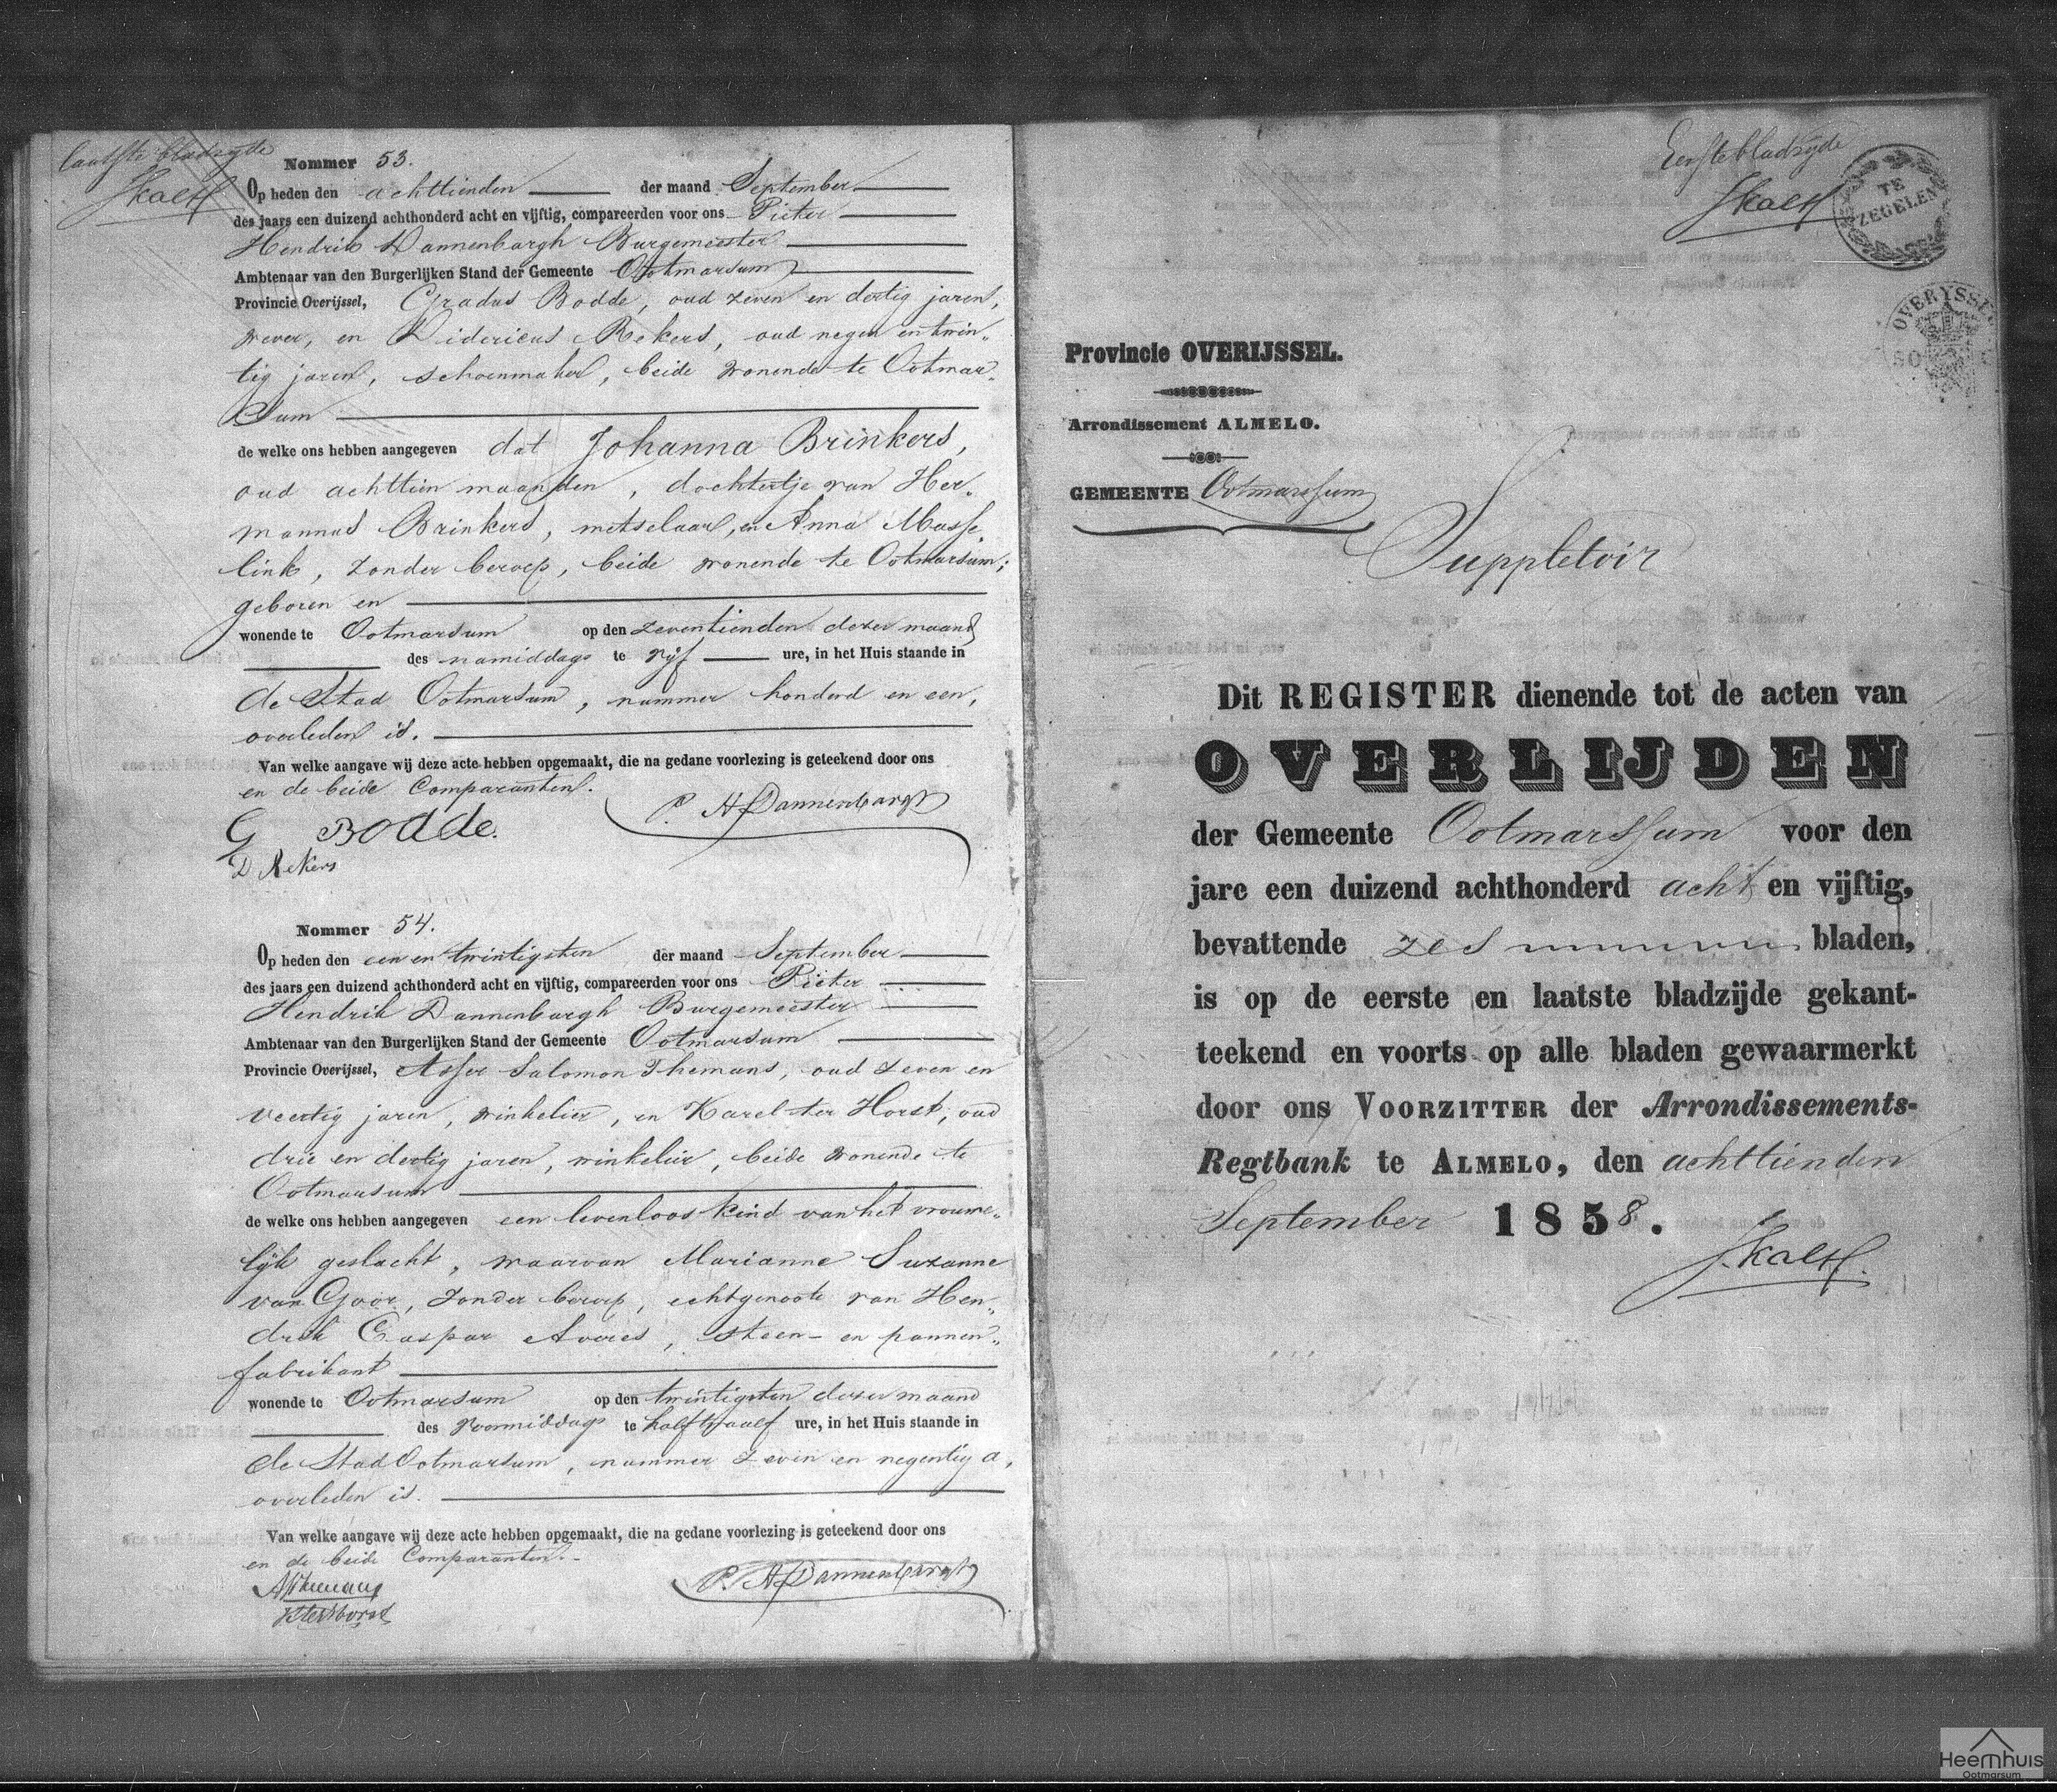 laatste bladzyde
Nommer 53.
Op heden den achttienden der maand September
des jaars een duizend achthonderd acht en vijftig, compareerden voor ons Pieter
Hendrik Dannenbargh Burgemeester
Ambtenaar van den Burgerlijken Stand der Gemeente Ootmarsum
Provincie Overijssel, Gradus Bodde, oud zeven en dertig jaren,
wever, en Didericus Rekers, oud negen en twin„
tig jaren, schoenmaker, beide wonende te Ootmar„
sum
de welke ons hebben aangegeven dat Johanna Brinkers,
oud achttien maanden, dochtertje van Her„
mannus Brinkers, metselaar, en Anna Masse„
link, zonder beroep, beide wonende te Ootmarsum;
geboren en
wonende te Ootmarsum op den zeventienden dezer maand
des namiddags te vijf ure, in het Huis staande in
de Stad Ootmarsum, nummer honderd en een,
overleden is.
Van welke aangave wij deze acte hebben opgemaakt, die na gedane voorlezing is geteekend door ons
en de beide Comparanten.
P. H. Dannenbargh
G Bodde.
D Rekers
Nommer 54.
Op heden den een en twintigsten der maand September
des jaars een duizend achthonderd acht en vijftig, compareerden voor ons Pieter
Hendrik Dannenbargh Burgemeester
Ambtenaar van den Burgerlijken Stand der Gemeente Ootmarsum
Provincie Overijssel, Asser Salomon Themans, oud zeven en
veertig jaren, winkelier, en Karel ter Horst, oud
drie en dertig jaren, winkelier, beide wonende te
Ootmarsum
de welke ons hebben aangegeven een levenloos kind van het vrouwe„
lijk geslacht, waarvan Marianne Suzanne
van Goor, zonder beroep, echtgenoote van Hen„
drik Caspar Averes, steen- en pannen„
fabrikant
wonende te Ootmarsum op den twintigsten dezer maand
des voormiddags te half twaalf ure, in het Huis staande in
de Stad Ootmarsum, nummer zeven en negentig a,
overleden is.
Van welke aangave wij deze acte hebben opgemaakt, die na gedane voorlezing is geteekend door ons
en de beide Comparanten.
P. H. Dannenbargh
A S Themans
K ter Horst
Eerste bladzyde
TE ZEGELEN
OVERYSSEL
Provincie OVERIJSSEL.
Arrondissement ALMELO.
GEMEENTE Ootmarssum
Suppletoir
Dit REGISTER dienende tot de acten van
OVERLIJDEN
der Gemeente Ootmarssum voor den
jare een duizend achthonderd acht en vijftig,
bevattende zes bladen,
is op de eerste en laatste bladzijde gekant-
teekend en voorts op alle bladen gewaarmerkt
door ons VOORZITTER der Arrondissements-
Regtbank te ALMELO, den achttienden
September 1858.
Heemhuis
Ootmarsum